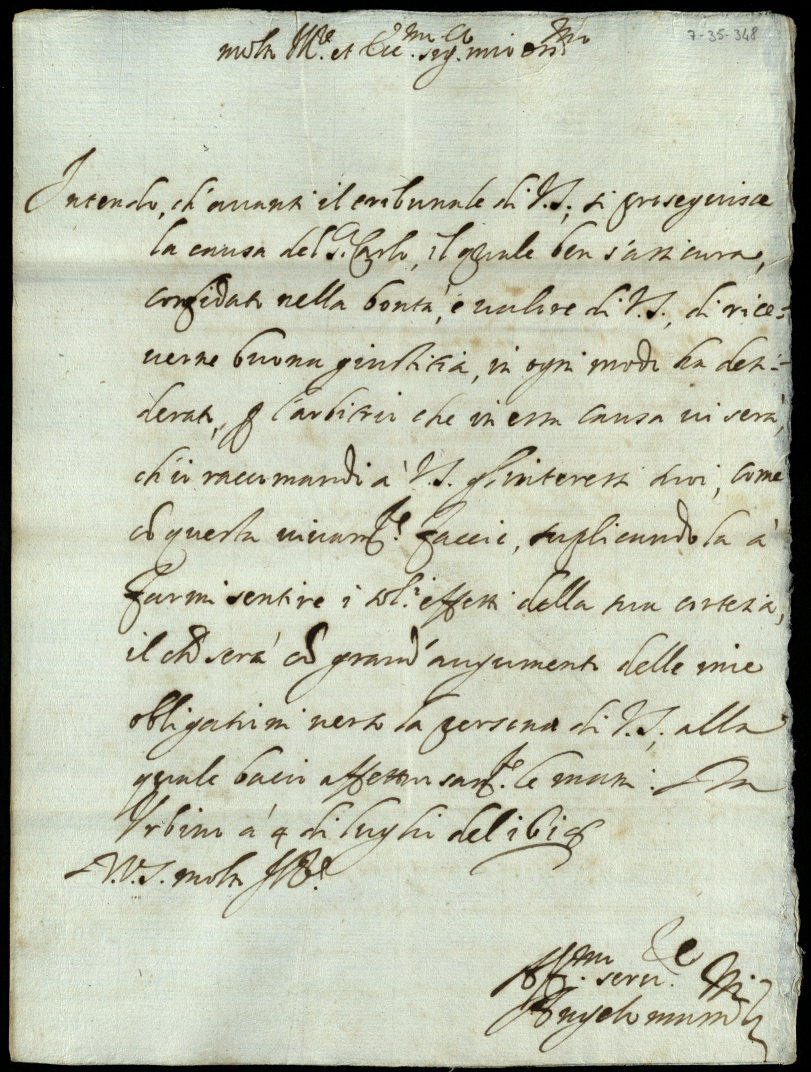 7-35-348
molto Ill.re et Ecc.mo sig. mio oss.mo
Intendo, ch'avanti il tribunale di V.S., si proseguisce
la causa del S. Carlo, il quale ben s'assicura,
confidato nella bontà, e valore di V.S., di rice=
verne buona giustitia, in ogni modo ha desi=
derato, p l'arbitrio che in essa causa vi serà,
ch'io raccomandi à V.S. gl'interessi suoi, come
cõ questa vivam.te faccio, suplicandola à
farmi sentire i sol.i effetti della sua cortesia,
il che serà cõ grand'augumento delle mie
obligationi verso la persona di V.S., alla
quale bacio affettuosam.te le mani. Da
Urbino à 4 di luglio del 161
D.V.S. molto Ill.re
Aff.mo serv.re
Angelo